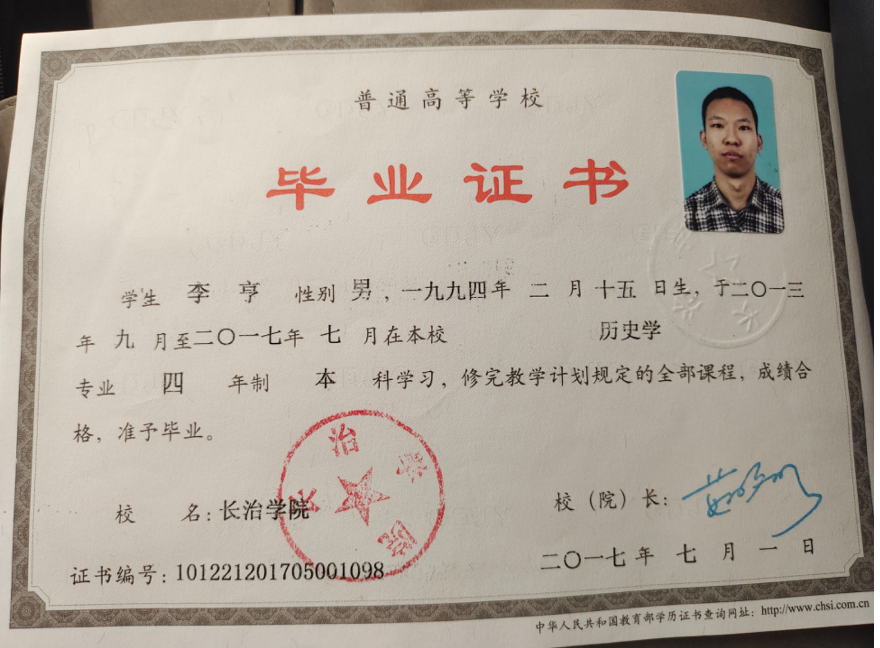 普通高等学校
毕业证书
学生 李亨 性别 男，一九九四年 二 月 十五 日生，于二〇一三
年 九 月至二〇一七年 七 月在本校 历史学
专业 四 年制 本 科学习，修完教学计划规定的全部课程，成绩合
格，准予毕业。
校 名：长治学院
校（院）长：
二〇一七年 七 月 一 日
证书编号：101221201705001098
长治学院
中华人民共和国教育部学历证书查询网址：http://www.chsi.com.cn